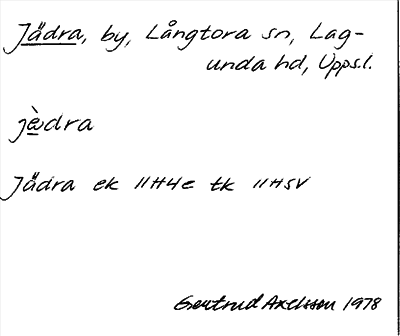 Jädra, by, Långtora sn, Lag-
unda hd, Upps.l.
jè̠dra
Jädra ek 11H4e tk 11H5V
Gertrud Axelsson 1978